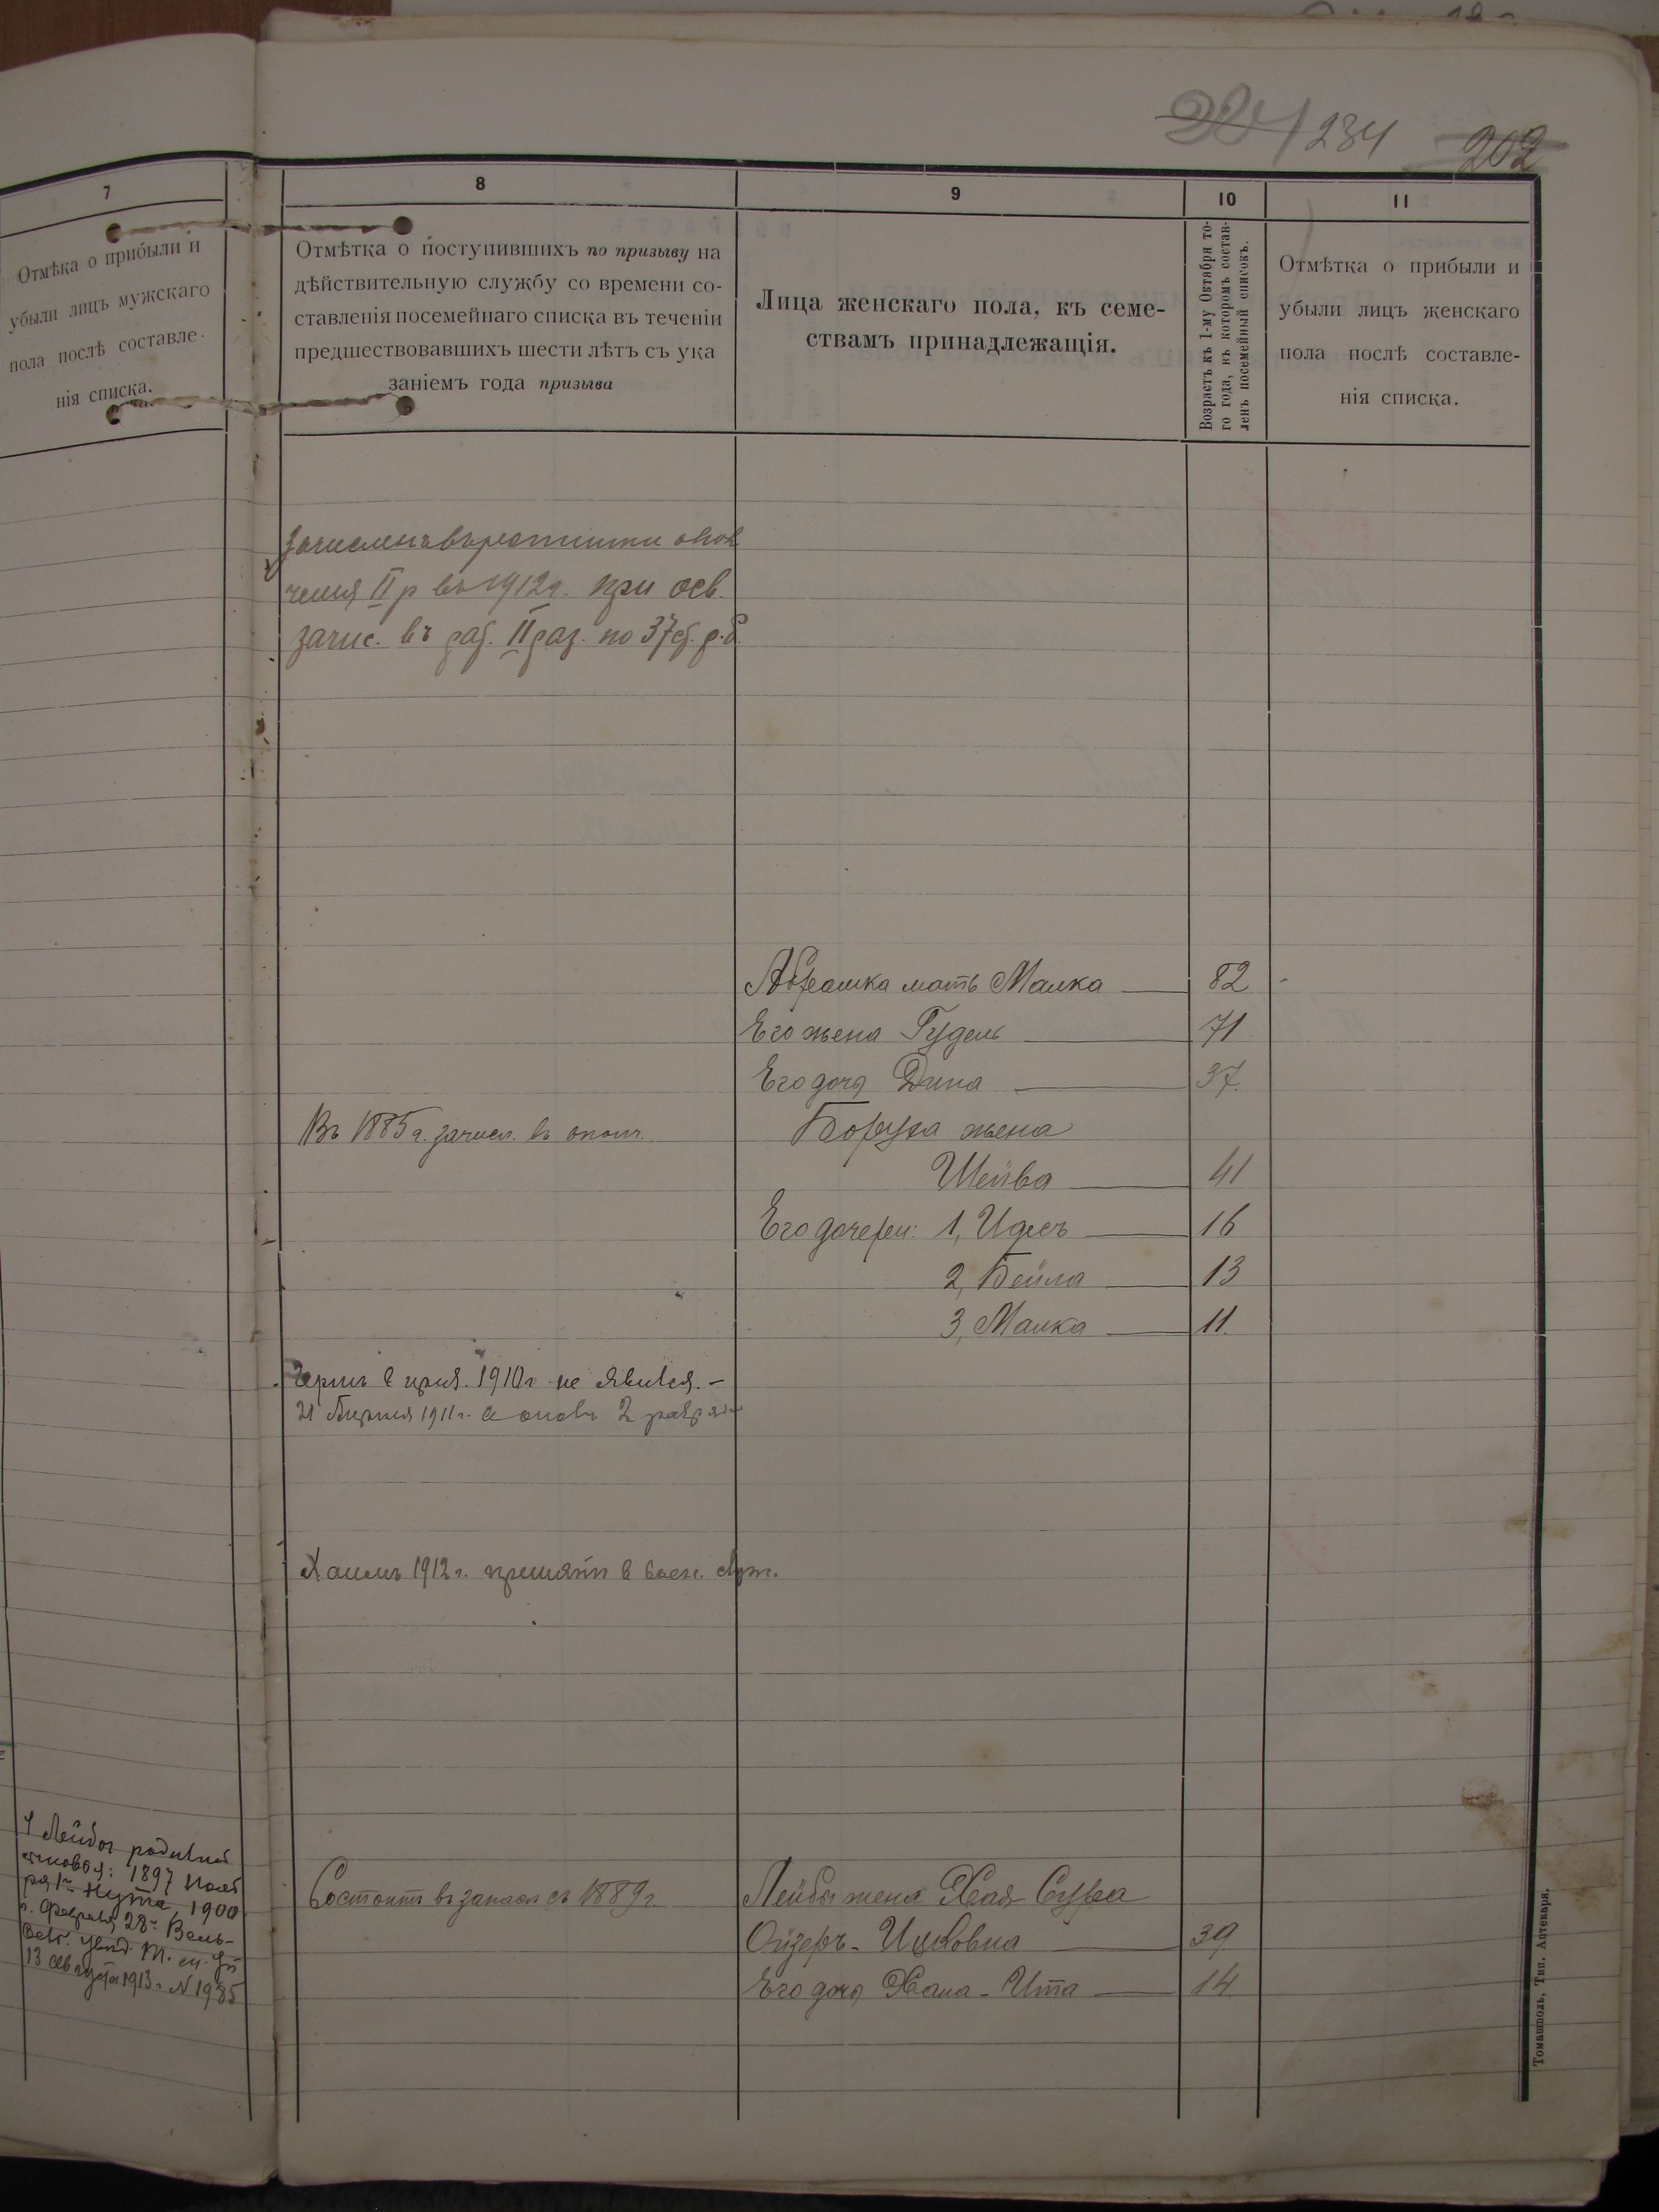 234 202
7
Отмѣка о прибыли и
убыли лицъ мужскаго
пола послѣ составле-
нія списка.
8
Отмѣтка о поступившихъ по призыву на
дѣйствительную службу со времени со-
ставленія посемейнаго списка въ теченіи
предшествовавшихъ шести лѣтъ съ ука
заніемъ года призыва
9
Лица женскаго пола, къ семе-
ствамъ принадлежащія.
10
Возрастъ къ 1-му Октября то-
го года, въ которомъ состав-
ленъ посемейный списокъ.
11
Отмѣтка о прибыли и
убыли лицъ женскаго
пола послѣ составле-
нія списка.
зачисленъ въ ратники опол
ченія II р въ 1912г. при осв.
зачис. въ II раз. по 37
Абрашка мать Малка 82
Его жена Гудель 71
Его дочь Дина 37.
Въ 1885 г. зачисл. въ ополч. Боруха жена
Шейва 41
Его дочери: 1, Идесъ 16
2, Бейла 13
3, Малка 11.
1910г не явился. –
21 Апреля 1911г. 2 разряд
Хаимъ 1912г. принятъ в воен. служ.
У Лейбы родились
сыновья: 1897 Нояб
ря 1го Нута, 1900
г. Февраля 28го Вель-
13 августа 1913г. N 1985
Состоитъ въ запасѣ съ 1889г Лейбы жена Хая Сура
Ойзеръ-Ицковна 39
Его дочь Хана-Ита 14
Томашполь, Тип. Аптекаря.